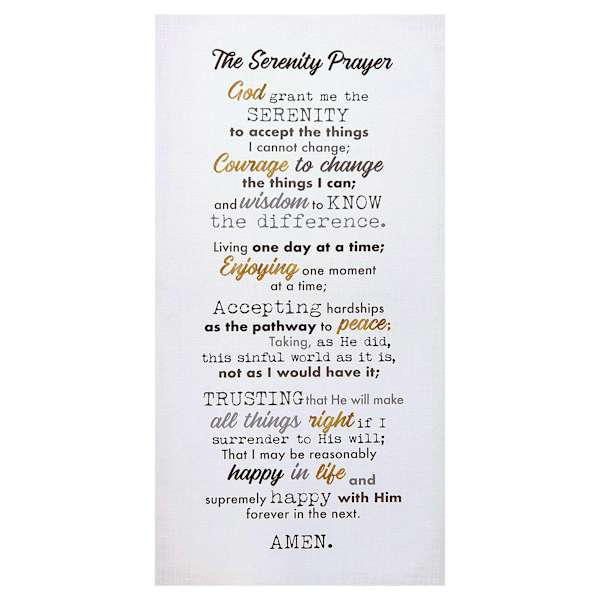 The Serenity Prayer
God grant me the
SERENITY
to accept the things
I cannot change;
Courage to change
the things I can;
and wisdom to KNOW
the difference.
Living one day at a time;
Enjoying one moment
at a time;
Accepting hardships
as the pathway to peace;
Taking, as He did,
this sinful world as it is,
not as I would have it;
TRUSTING that He will make
all things right if I
surrender to His will;
That I may be reasonably
happy in life and
supremely happy with Him
forever in the next.
AMEN.